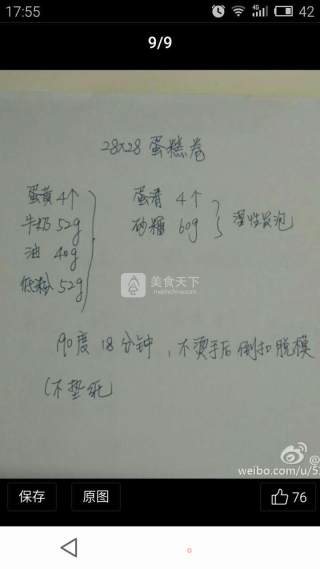 17:55
4G
42
9/9
28×28 蛋糕卷
蛋黄 4个
牛奶 52g
油 40g
低粉 52g
蛋清 4个
砂糖 60g
湿性发泡
美食天下
meishichina.com
190度 18分钟，不烫手后倒扣脱模
(不垫纸)
@
weibo.com/u/5
保存
原图
76